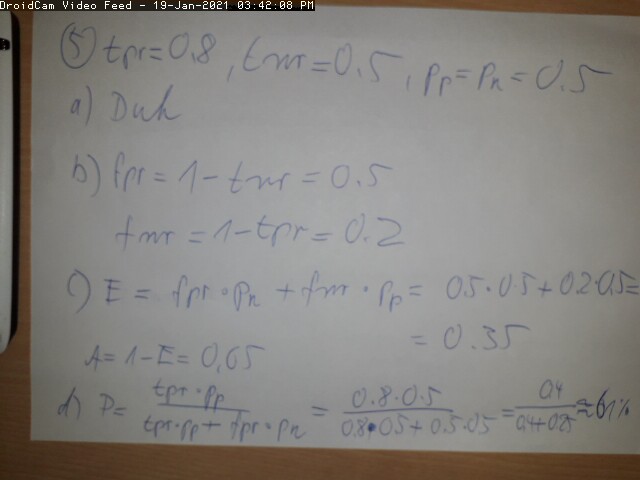 DroidCam Video Feed - 19-Jan-2021 03:42:08 PM
5) tpr=0.8, tnr=0.5, pp=pn=0.5
a) Duh
b) fpr = 1-tnr = 0.5
fnr = 1-tpr = 0.2
c) E = fpr·pn + fnr·pp = 0.5·0.5+0.2·0.5=
= 0.35
A= 1-E= 0,65
d) P= tpr·pp / tpr·pp + fpr·pn = 0.8·0.5 / 0.8·0.5+0.5·0.5 = 0.4 / 0.4+0.25 ≈ 61%